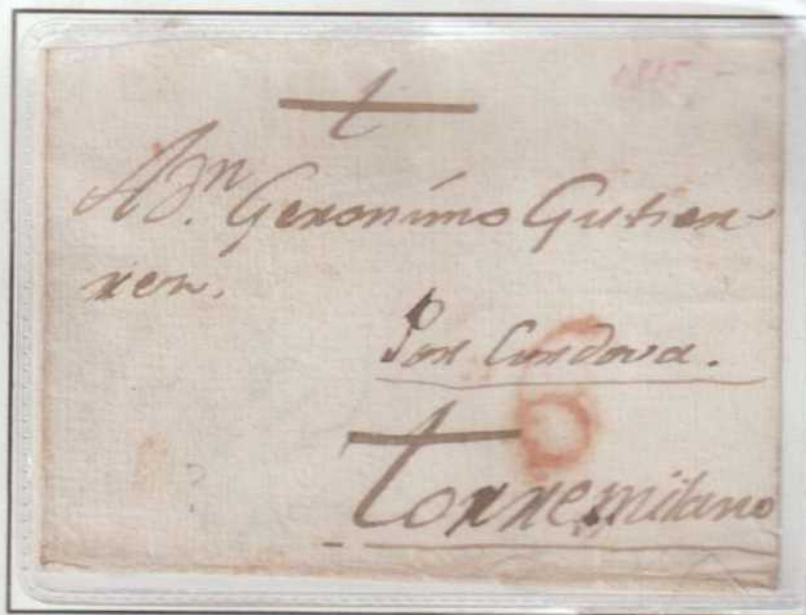 1815 -
A Dn. Geronimo Gutier-
rez.
Por Cordova.
Torremilano